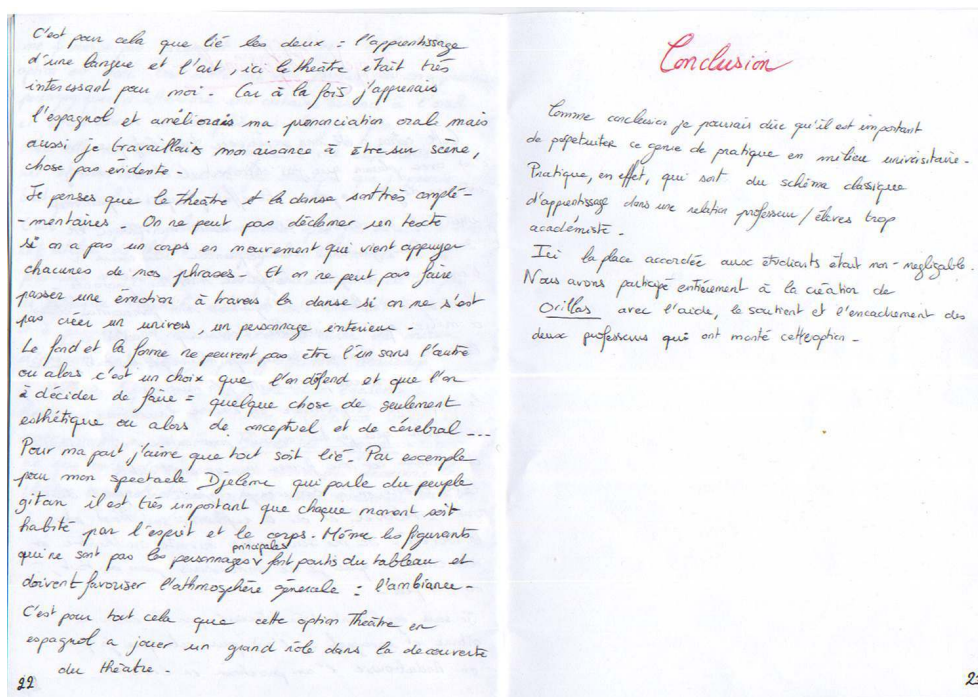 C'est pour cela que lié les deux : l'apprentissage
d'une langue et l'art, ici le théâtre était très
interessant pour moi. Car à la fois j'apprenais
l'espagnol et améliorais ma prononciation orale mais
aussi je travaillais mon aisance à etre sur scène,
chose pas évidente.
Je penses que le théatre et la danse sont très complé-
-mentaires. On ne peut pas déclamer un texte
si on a pas un corps en mouvement qui vient appuyer
chacunes de nos phrases. Et on ne peut pas faire
passer une émotion à travers la danse si on ne s'est
pas créer un univers, un personnage intérieur.
Le fond et la forme ne peuvent pas être l'un sans l'autre
ou alors c'est un choix que l'on défend et que l'on
à décider de faire = quelque chose de seulement
esthétique ou alors de conceptuel et de cérébral ---
Pour ma part j'aime que tout soit lié. Par exemple
pour mon spectacle Djelem qui parle du peuple
gitan il est très important que chaque moment soit
habité par l'esprit et le corps. Même les figurants
qui ne sont pas les personnages principales font partis du tableau et
doivent favoriser l'athmosphère générale : l'ambiance.
C'est pour tout cela que cette option Théâtre en
espagnol a jouer un grand rôle dans la decouverte
du théatre.
22
Conclusion
Comme conclusion je pourrais dire qu'il est important
de pépetuiter ce genre de pratique en milieu universitaire.
Pratique, en effet, qui sort du schéma classique
d'apprentissage dans une relation professeur/élèves trop
académiste.
Ici la place accordée aux étudiants était non-negligable.
Nous avons participé entièrement à la création de
Orillas avec l'aide, le soutient et l'encadrement des
deux professeurs qui ont monté cette option.
2